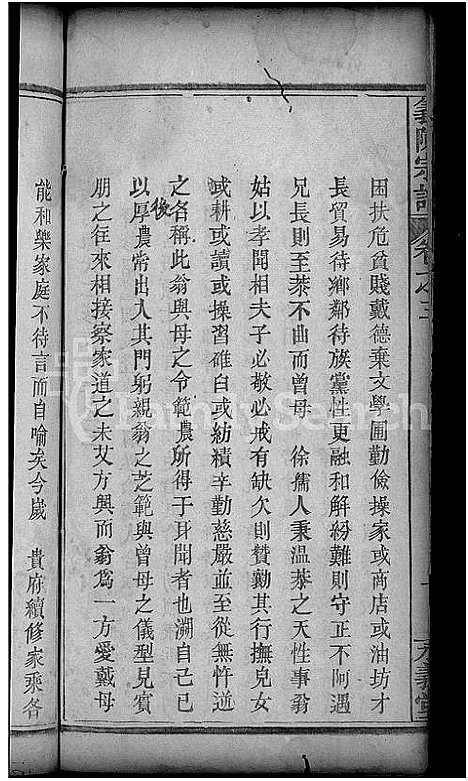 義陳宗譜 卷之三
困扶危貧賤戴德棄文學圃勤儉操家或商店或油坊才
長貿易待鄉鄰待族黨性更融和解紛難則守正不阿遇
兄長則至恭不曲而曾母 徐孺人秉溫恭之天性事翁
姑以孝聞相夫子必敬必戒有缺欠則賛勷其行撫兒女
或耕或讀或操習碓臼或紡績辛勤慈嚴並至從無忤逆
之名稱此翁與母之令範農所得于耳聞者也溯自己巳
以後厚農常出入其門躬親翁之芝範與曾母之儀型見賓
朋之往來相接察家道之未艾方興而翁爲一方愛戴母
能和樂家庭不待言而自喻矣今歲 貴府續修家乘各
義堂
FamilySearch